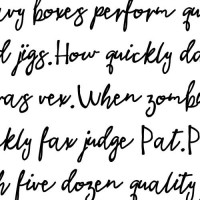 vy boxes perform qu
d jigs.How quickly da
ras vex.When zomb
kly fax judge Pat.P
h five dozen quality